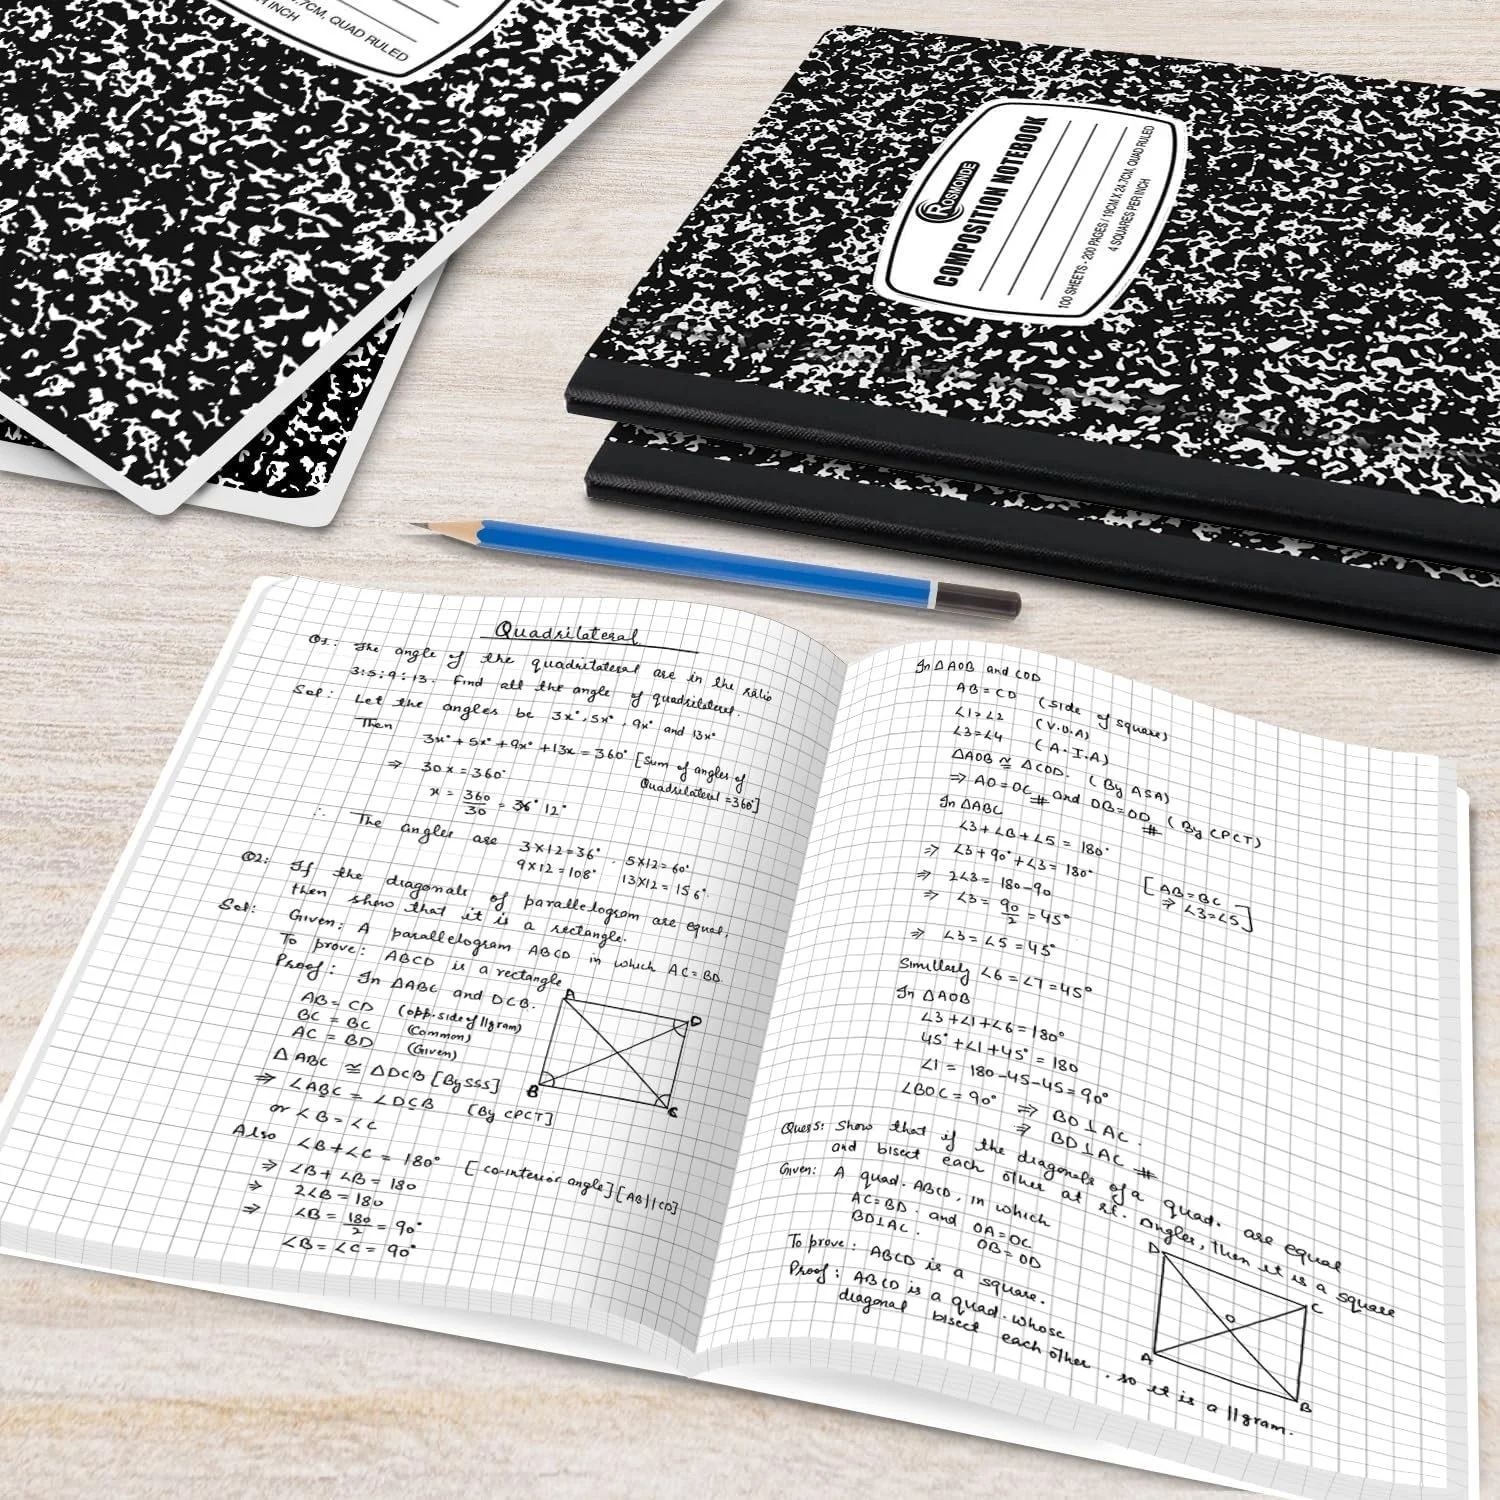 .7CM, QUAD RULED
R INCH
ROSMONDE
COMPOSITION NOTEBOOK
100 SHEETS - 200 PAGES / 19CM X 24.7CM, QUAD RULED
4 SQUARES PER INCH
Quadrilateral
Q1: The angle of the quadritateral are in the ratio
3:5:9:13. Find all the angle of quadrilateral.
Sol: Let the angles be 3x°, 5x°, 9x° and 13x°
Then
3x° + 5x° + 9x° + 13x = 360° [Sum of angles of
Quadrilateral = 360°]
⇒ 30x = 360°
x = 360/30 = 36° 12°
∴ The angles are 3×12=36°, 5×12=60°
9×12=108° 13×12=156°
Q2: If the diagonals of parallelogram are equal,
then show that it is a rectangle.
Sol: Given: A parallelogram ABCD in which AC=BD.
To prove: ABCD is a rectangle
Proof: In ΔABC and DCB.
AB = CD (opp. side of llgram)
BC = BC (Common)
AC = BD (Given)
Δ ABC ≅ ΔDCB [By SSS]
⇒ ∠ABC = ∠DCB (By CPCT]
or ∠B = ∠C
Also ∠B+∠C = 180° [co-interior angle] [AB||CD]
⇒ ∠B + ∠B = 180
⇒ 2∠B = 180
⇒ ∠B = 180/2 = 90°
∠B = ∠C = 90°
A
D
B
C
In Δ AOB and COD
AB = CD (side of square)
∠1=∠2 (V.O.A)
∠3=∠4 (A.I.A)
ΔAOB ≅ ΔCOD. (By ASA)
⇒ AO=OC # and OB=OD # (By CPCT)
In ΔABC
∠3+∠B+∠5 = 180°
⇒ ∠3+90°+∠3 = 180°
⇒ 2∠3 = 180-90 [AB=BC
⇒ ∠3 = 90/2 = 45° ⇒ ∠3=∠5]
⇒ ∠3 = ∠5 = 45°
Simillarly ∠6 = ∠7 = 45°
In ΔAOB
∠3+∠1+∠6 = 180°
45°+∠1+45° = 180
∠1 = 180-45-45 = 90°
∠BOC = 90° ⇒ BO ⊥ AC.
⇒ BD ⊥ AC #
Ques 5: Show that if the diagonals of a quad. are equal
and bisect each other at rt. angles, then it is a square
Given: A quad. ABCD, in which
AC=BD. and OA=OC
BD⊥AC. OB=OD
To prove: ABCD is a square.
Proof: ABCD is a quad. whose
diagonal bisect each other, so it is a llgram.
D
C
O
A
B